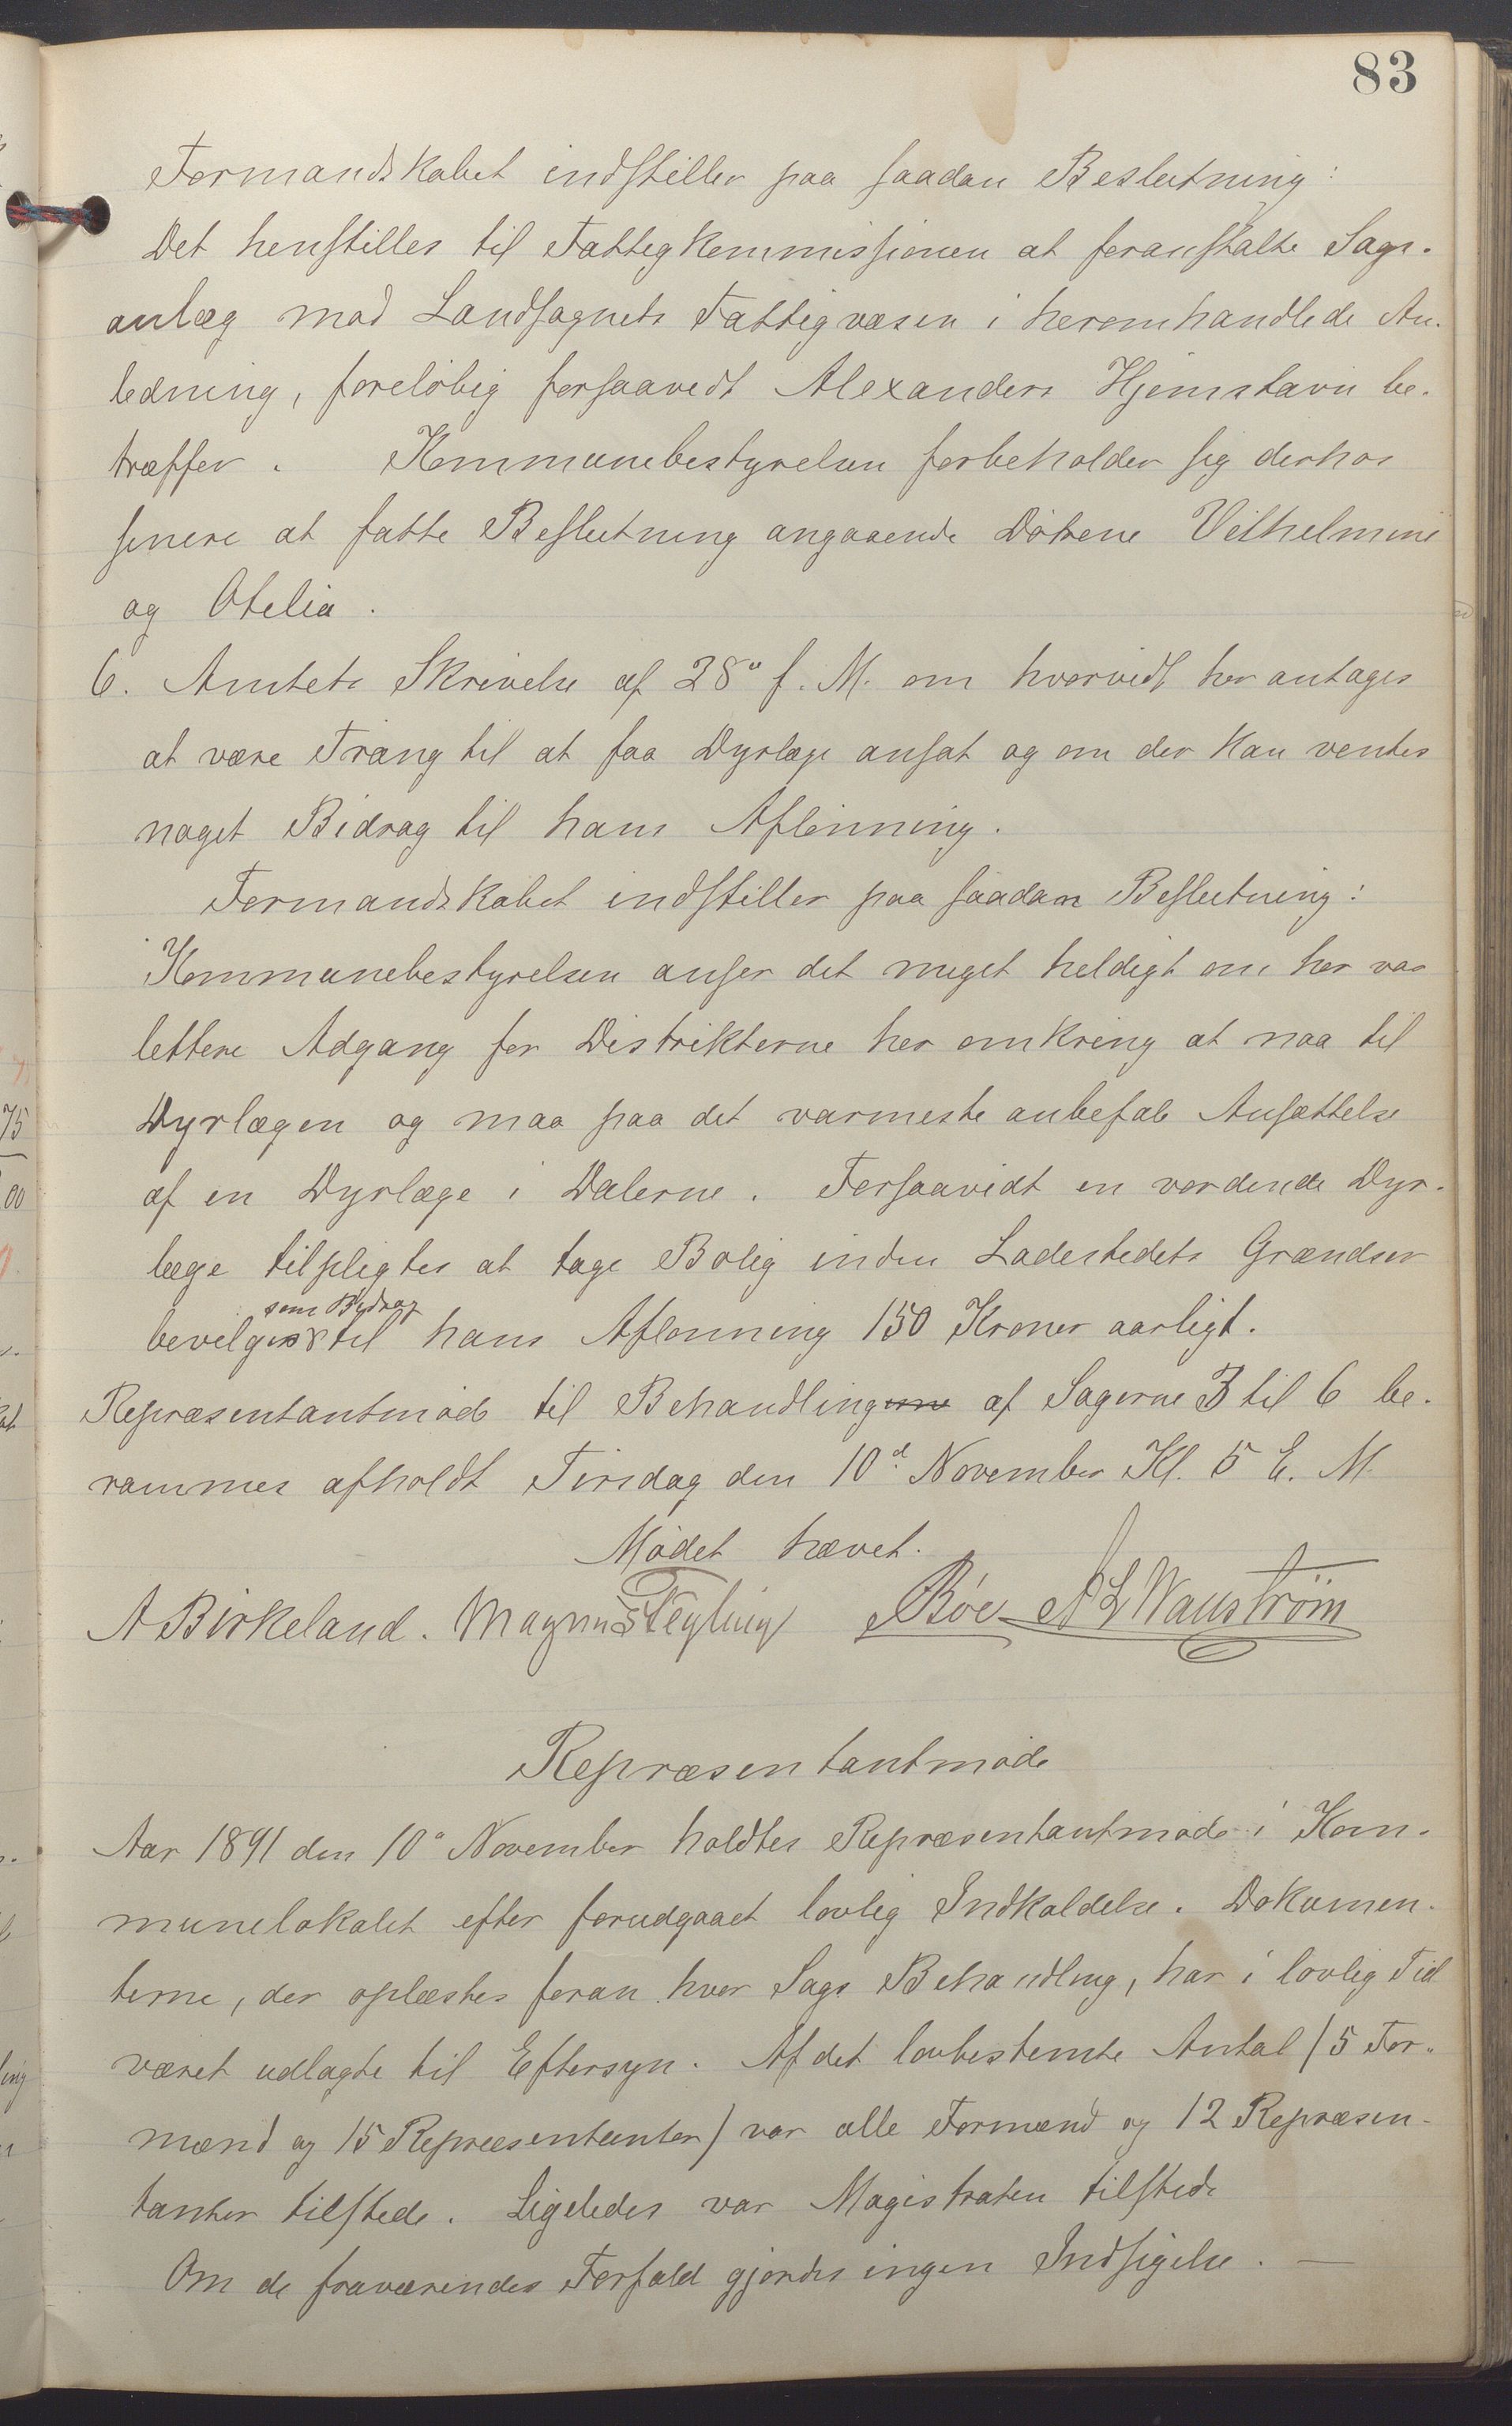 83
Formandskabet indstiller paa saadan Beslutning:
Det henstilles til Fattigkommissionen at foranstalte Sags-
anlæg mod Landsognets Fattigvæsen i heromhandlede An-
ledning, foreløbig forsaavidt Alexanders Hjemstavn be-
træffer. Kommunebestyrelsen forbeholder sig derhos
senere at fatte Beslutning angaaende Døtrene Vilhelmine
og Otelia.
6. Amtets Skrivelse af 28º f. M. om hvorvidt her antages
at være Trang til at faa Dyrlæge ansat og om der kan ventes
noget Bidrag til hans Aflønning.
Formandskabet indstiller paa saadan Beslutning:
Kommunebestyrelsen anser det meget heldigt om her var
lettere Adgang for Distrikterne her omkring at naa til
Dyrlægen og maa paa det varmeste anbefale Ansættelse
af en Dyrlæge i Dalerne. Forsaavidt en vordende Dyr-
læge tilpligtes at tage Bolig inden Ladestedets Grændser
som Bydrag
bevilges til hans Aflønning 150 Kroner aarligt.
Repræsentantmøde til Behandling af Sagerne 3 til 6 be-
rammes afholdt Tirsdag den 10d November Kl. 5 E. M.
Mødet hævet.
A Birkeland. Magnus Feyling Bøe A L Wanström
Repræsentantmøde
Aar 1891 den 10º November holdtes Repræsentantmøde i Kom-
munelokalet efter forudgaaet lovlig Indkaldelse. Dokumen-
terne, der oplæstes foran hver Sags Behandling, har i lovlig Tid
været udlagte til Eftersyn. Af det lovbestemte Antal (5 For-
mænd og 15 Repræsentanter) var alle Formænd og 12 Repræsen-
tanter tilstede. Ligeledes var Magistraten tilstede
Om de fraværendes Forfald gjordes ingen Indsigelse. —